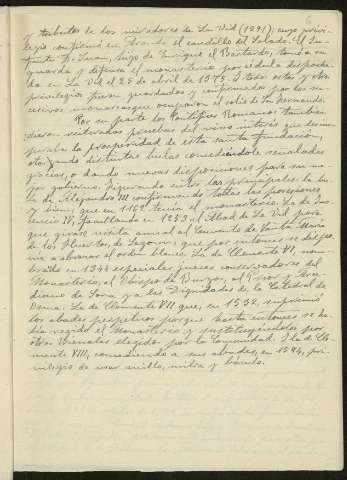 y tributos de los moradores de La Vid (1291); cuyo privi-
legio confirmó en Aranda el caudillo del Salado. El In-
fante D. Juan, hijo de Enrique el Bastardo, toma en
guarda y defensa el monasterio por cédula despacha-
da en La Vid el 25 de abril de 1375. Y todos estos y otros
privilegios fueron guardados y confirmados por los su-
cesivos monarcas que ocuparon el solio de San Fernando.
Por su parte los Pontífices Romanos también
dieron reiteradas pruebas del vivo interés que les ins-
piraba la prosperidad de esta santa fundación,
otorgando distintas bulas concediéndole señaladas
gracias, o dando nuevas disposiciones para su me-
jor gobierno. Figurando entre las principales: la bu-
la de Alejandro III confirmando todas las posesiones
y bienes que en 1163 tenía el monasterio. La de Ino-
cencio IV, facultando en 1253 al Abad de La Vid para
que girase visita anual al Convento de Santa María
de los Huertos, de Segovia; que por entonces se dispo-
nía a abrazar el orden blanco. La de Clemente VI, nom-
brando en 1344 especiales jueces conservadores del
Monasterio, al Obispo de Burgos, al Prior y Arce-
diano de Soria y a las Dignidades de la Catedral de
Osma. La de Clemente VII que, en 1532, suprimió
los abades perpetuos porque hasta entonces se ha-
bía regido el Monasterio y sustituyéndolos por
otros trienales elegidos por la Comunidad. Y la de Cle-
mente VIII, concediendo a sus abades, en 1594, pri-
vilegio de usar anillo, mitra y báculo.